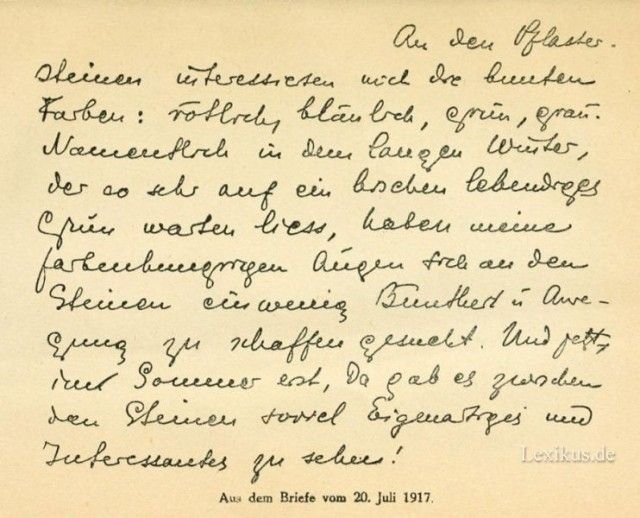 An den Pflaster-
steinen interessieren mich die bunten
Farben: rötlich, bläulich, grün, grau.
Namentlich in dem langen Winter,
der so sehr auf ein bischen lebendiges
Grün warten liess, haben meine
farbenhungrigen Augen sich an den
Steinen ein wenig Buntheit u Anre-
gung zu schaffen gesucht. Und jetzt,
im Sommer erst, da gab es zwischen
den Steinen soviel Eigenartiges und
Interessantes zu sehen!
Lexikus.de
Aus dem Briefe vom 20. Juli 1917.